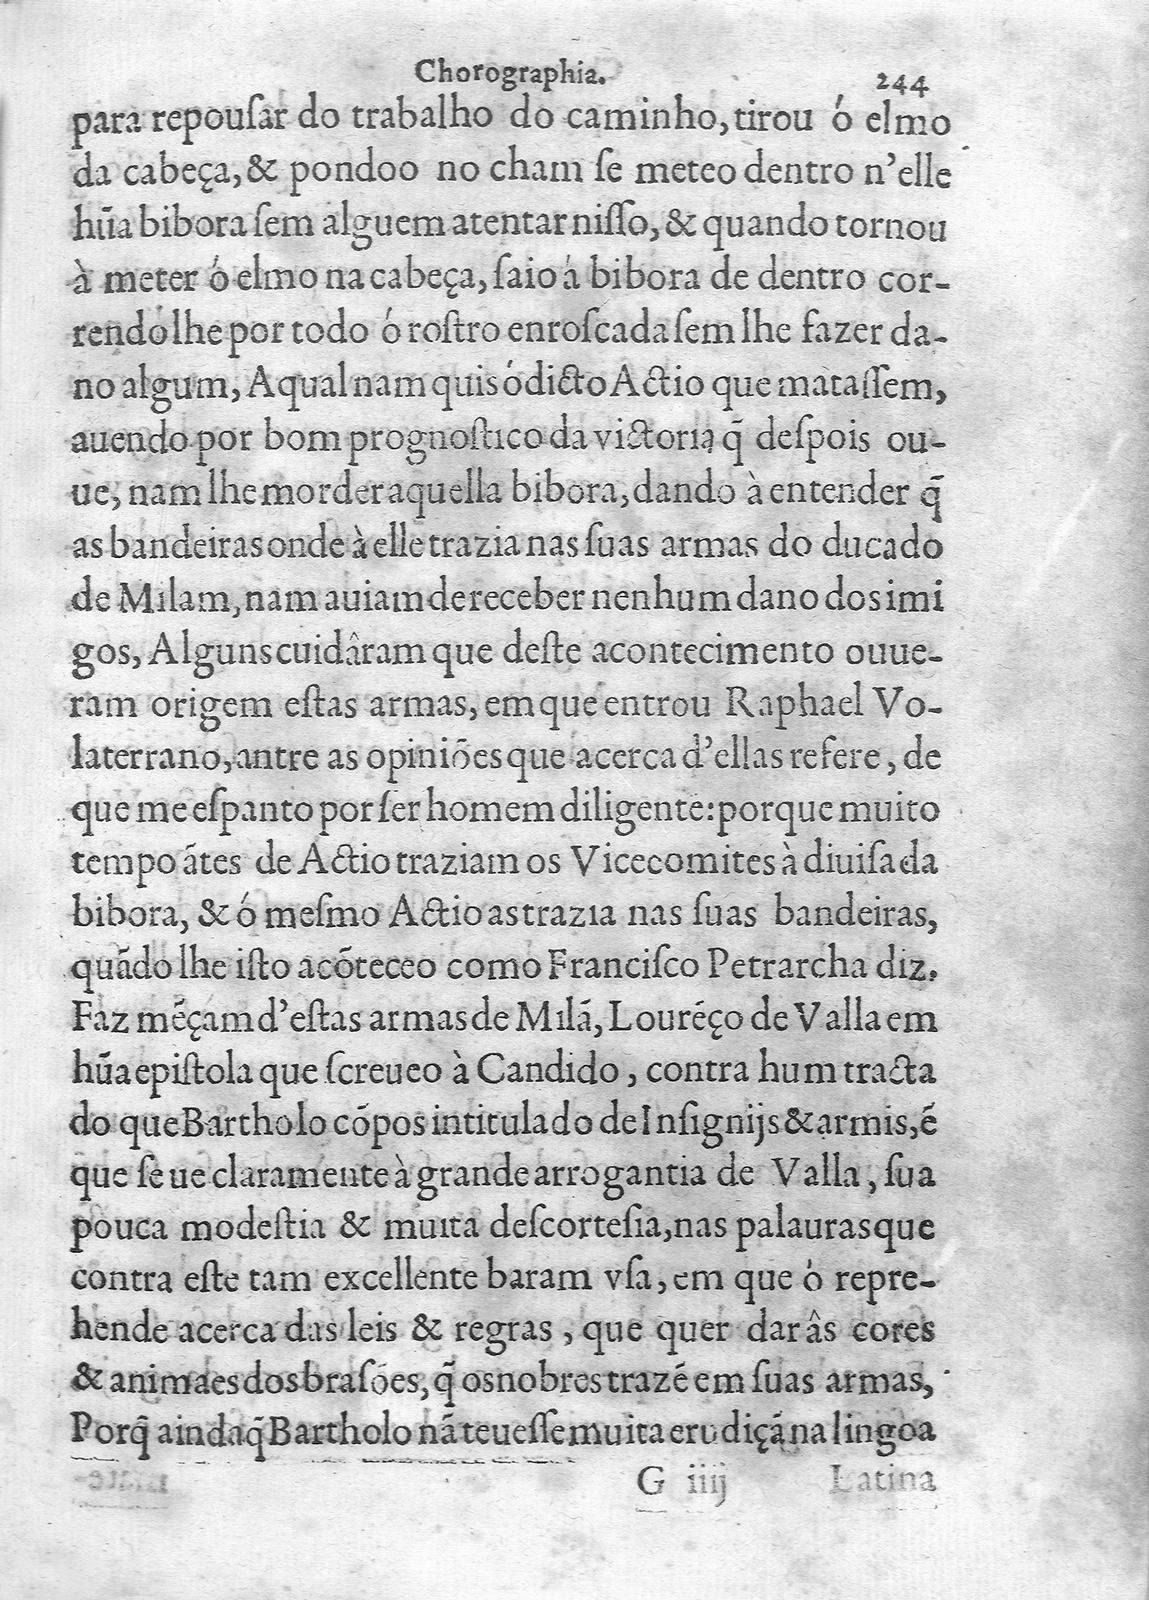 Chorographia. 244
para repouſar do trabalho do caminho, tirou ó elmo
da cabeça, & pondoo no cham ſe meteo dentro n'elle
hũa bibora ſem alguem atentar niſſo, & quando tornou
à meter ó elmo na cabeça, ſaio á bibora de dentro cor-
rendolhe por todo ó roſtro enroſcada ſem lhe fazer da-
no algum, Aqual nam quis ó dicto Actio que mataſſem,
auendo por bom prognoſtico da victoria q̃ deſpois ou-
ue, nam lhe morder aquella bibora, dando à entender q̃
as bandeiras onde à elle trazia nas ſuas armas do ducado
de Milam, nam auiam de receber nenhum dano dos imi
gos, Alguns cuidâram que deſte acontecimento ouue-
ram origem eſtas armas, em que entrou Raphael Vo-
laterrano, antre as opiniões que acerca d'ellas refere, de
que me eſpanto por ſer homem diligente: porque muito
tempo ãtes de Actio traziam os Vicecomites à diuiſa da
bibora, & ó meſmo Actio as trazia nas ſuas bandeiras,
quãdo lhe iſto acõteceo como Franciſco Petrarcha diz.
Faz mẽçam d'eſtas armas de Milã, Lourẽço de Valla em
hũa epiſtola que ſcreueo à Candido, contra hum tracta
do que Bartholo cõpos intitulado de Inſignijs & armis, ẽ
que ſe ue claramente à grande arrogantia de Valla, ſua
pouca modeſtia & muita deſcorteſia, nas palauras que
contra eſte tam excellente baram vſa, em que ó repre-
hende acerca das leis & regras, que quer dar âs cores
& animaes dos braſões, q̃ os nobres trazẽ em ſuas armas,
Porq̃ ainda q̃ Bartholo nã teueſſe muita erudiçã na lingoa
G iiij Latina